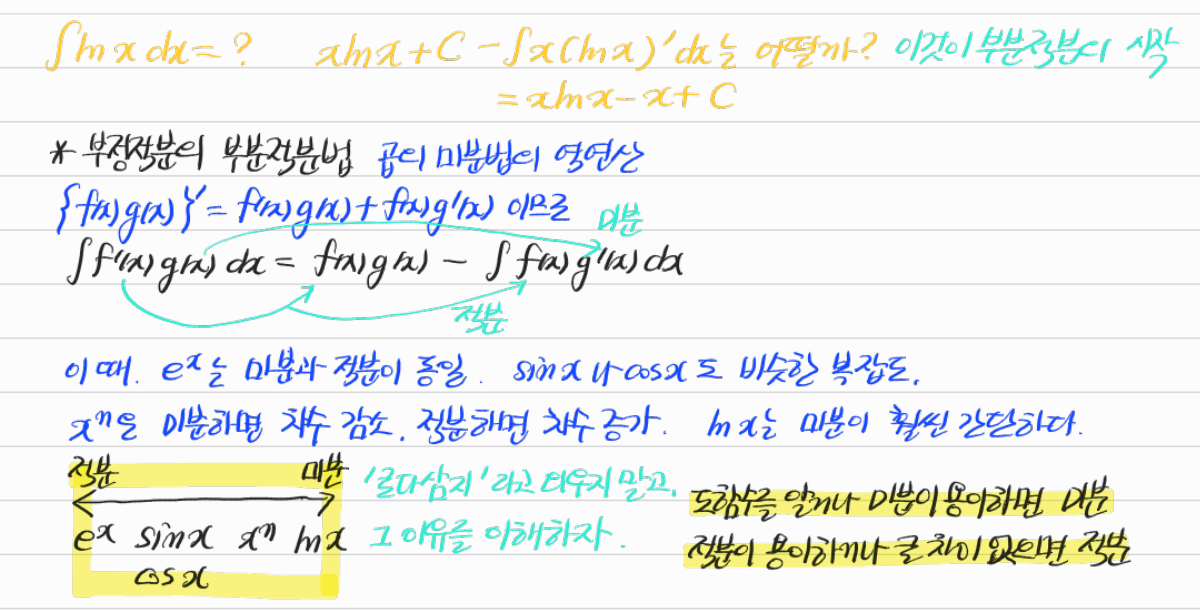 ∫ln x dx = ? xlnx + C - ∫x(lnx)'dx는 어떨까? 이것이 부분적분의 시작
= xlnx - x + C
* 부정적분의 부분적분법 곱의 미분법의 역연산
{f(x)g(x)}' = f'(x)g(x) + f(x)g'(x) 이므로
미분
∫f'(x)g(x)dx = f(x)g(x) - ∫f(x)g'(x)dx
적분
이 때. eˣ는 미분과 적분이 동일. sinx나 cosx도 비슷한 복잡도.
xⁿ은 미분하면 차수 감소, 적분하면 차수 증가. lnx는 미분이 훨씬 간단하다.
적분 미분
eˣ sinx xⁿ lnx
cosx
'로다삼지'라고 외우지 말고,
그 이유를 이해하자.
도함수를 알거나 미분이 용이하면 미분
적분이 용이하거나 큰 차이 없으면 적분